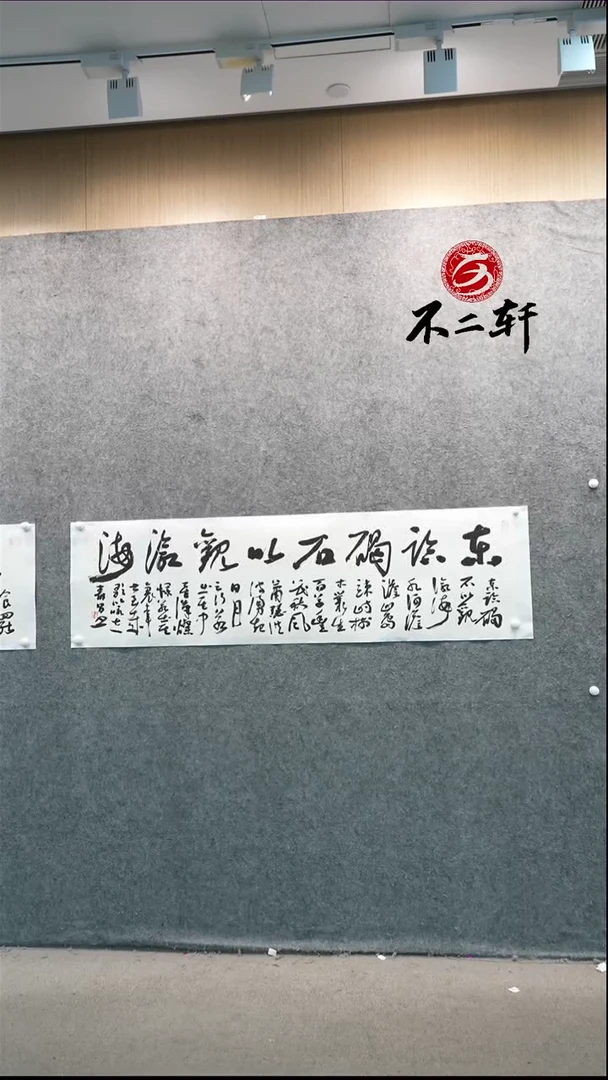 不二轩
东临碣石以观沧海
东临碣
石以观
沧海
水何澹
澹山岛
竦峙树
木丛生
百草丰
茂秋风
萧瑟洪
波涌起
日月
之行若
出其中
星汉灿